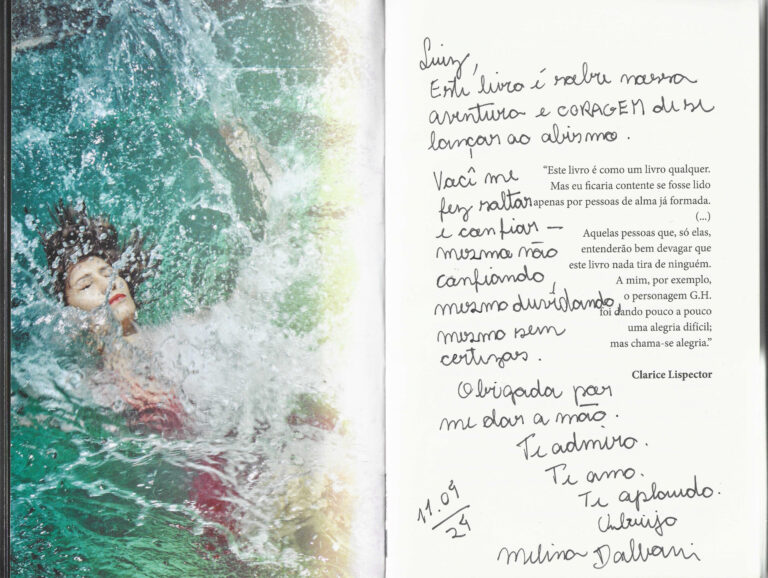 Luiz,
Este livro é sobre nossa
aventura e CORAGEM de se
lançar ao abismo.
Você me
fez saltar
e confiar —
mesmo não
confiando,
mesmo duvidando,
mesmo sem
certezas.
“Este livro é como um livro qualquer.
Mas eu ficaria contente se fosse lido
apenas por pessoas de alma já formada.
(...)
Aquelas pessoas que, só elas,
entenderão bem devagar que
este livro nada tira de ninguém.
A mim, por exemplo,
o personagem G.H.
foi dando pouco a pouco
uma alegria difícil;
mas chama-se alegria.”
Clarice Lispector
Obrigada por
me dar a mão.
Te admiro.
Te amo.
Te aplaudo.
11.09
24
Melina Dalboni